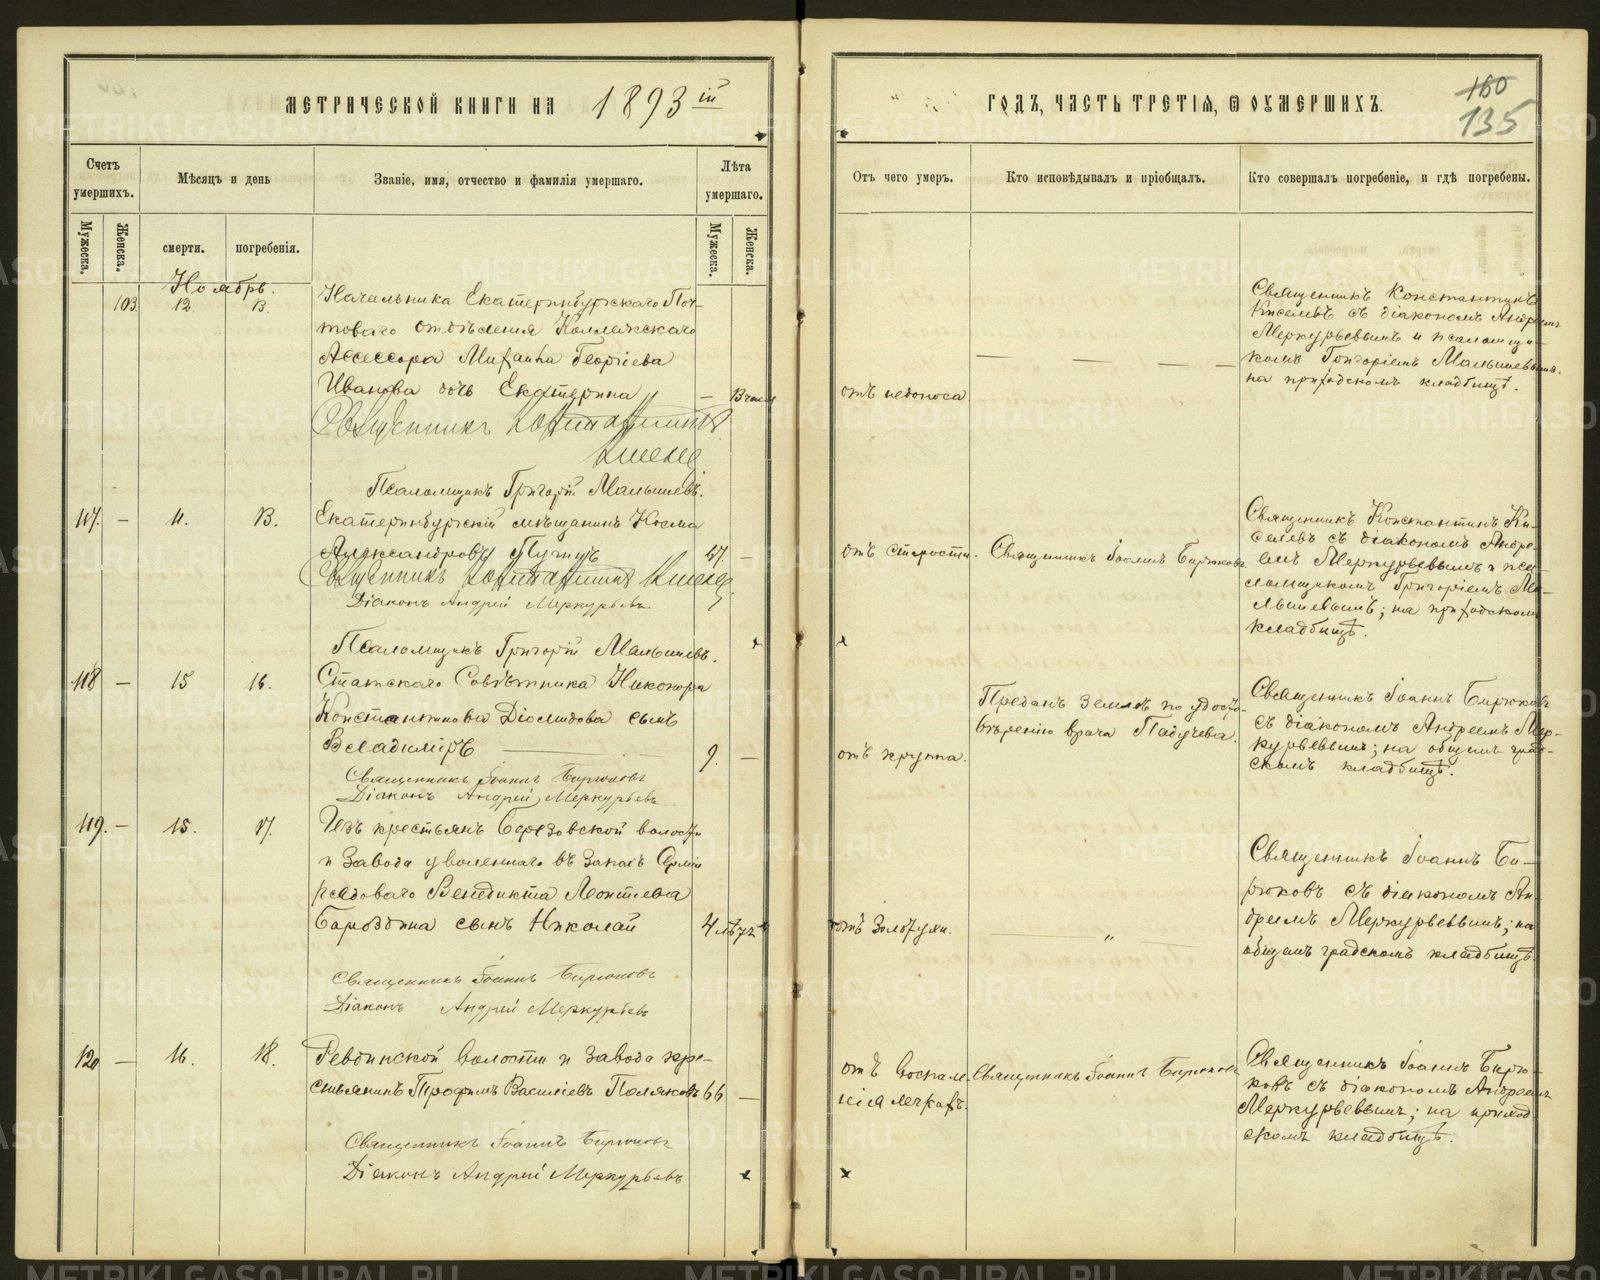 МЕТРИЧЕСКОЙ КНИГИ НА 1893 ій
Счетъ умершихъ.
Мѣсяцъ и день
Званіе, имя, отчество и фамилія умершаго.
Лѣта умершаго.
Мужеска.
Женска.
смерти.
погребенія.
Мужеска.
Женска.
Ноябрь.
103 12. 13.
Начальника Екатеринбургскаго Поч-
товаго отдѣленія Коллежскаго
Ассессора Михаила Георгіева
Иванова дочь Екатерина –
Священникъ Константинъ
Киселевъ
Псаломщикъ Григорій Малышевъ.
117. – 11. 13. Екатеринбургскій мѣщанинъ Косма
Александровъ 67. –
Священникъ Константинъ Киселевъ
Діаконъ Андрей Меркурьевъ
Псаломщикъ Григорій Малышевъ.
118 – 15 16. Статскаго Совѣтника Никонора
Константинова Діомидова сынъ
Владиміръ 9. –
Священникъ Іоаннъ Бирюковъ
Діаконъ Андрей Меркурьевъ
119. – 15. 17. Изъ крестьянъ Березовской волости
и Завода уволеннаго въ Запасъ Арміи
рядоваго Венедикта Леонтьева
Бароздина сынъ Николай 4
Священникъ Іоаннъ Бирюковъ
Діаконъ Андрей Меркурьевъ
120 – 16. 18. Ревдинской волости и Завода кре-
стьянинъ Трофимъ Василіевъ Поляковъ 66 –
Священникъ Іоаннъ Бирюковъ
Діаконъ Андрей Меркурьевъ
ГОДЪ, ЧАСТЬ ТРЕТІЯ, Ѡ ОУМЕРШИХЪ.
160
135
Отъ чего умеръ.
Кто исповѣдывалъ и пріобщалъ.
Кто совершалъ погребеніе, и гдѣ погребены.
отъ недоноса
— — —
Священникъ Константинъ
Киселевъ съ діакономъ Андреемъ
Меркурьевымъ и псаломщи-
комъ Григоріемъ Малышевымъ.
на приходскомъ кладбищѣ.
отъ старости. Священникъ Іоаннъ Бирюковъ
Священникъ Константинъ Ки-
селевъ съ діакономъ Андре-
емъ Меркурьевымъ и пса-
ломщикомъ Григоріемъ Ма-
лышевымъ; на приходскомъ
кладбищѣ.
отъ крупа.
Преданъ землѣ по удосто-
вѣренію врача Падучева.
Священникъ Іоаннъ Бирюковъ
съ діакономъ Андреемъ Мер-
курьевымъ; на общемъ град-
скомъ кладбищѣ.
отъ золотухи. — „ —
Священникъ Іоаннъ Би-
рюковъ съ діакономъ Ан-
дреемъ Меркурьевымъ; на
общемъ градскомъ кладбищѣ.
отъ воспале-
нія легкихъ.
Священникъ Іоаннъ Бирюковъ
Священникъ Іоаннъ Бирю-
ковъ съ діакономъ Андреемъ
Меркурьевымъ; на приход-
скомъ кладбищѣ.
METRIKI.GASO-URAL.RU